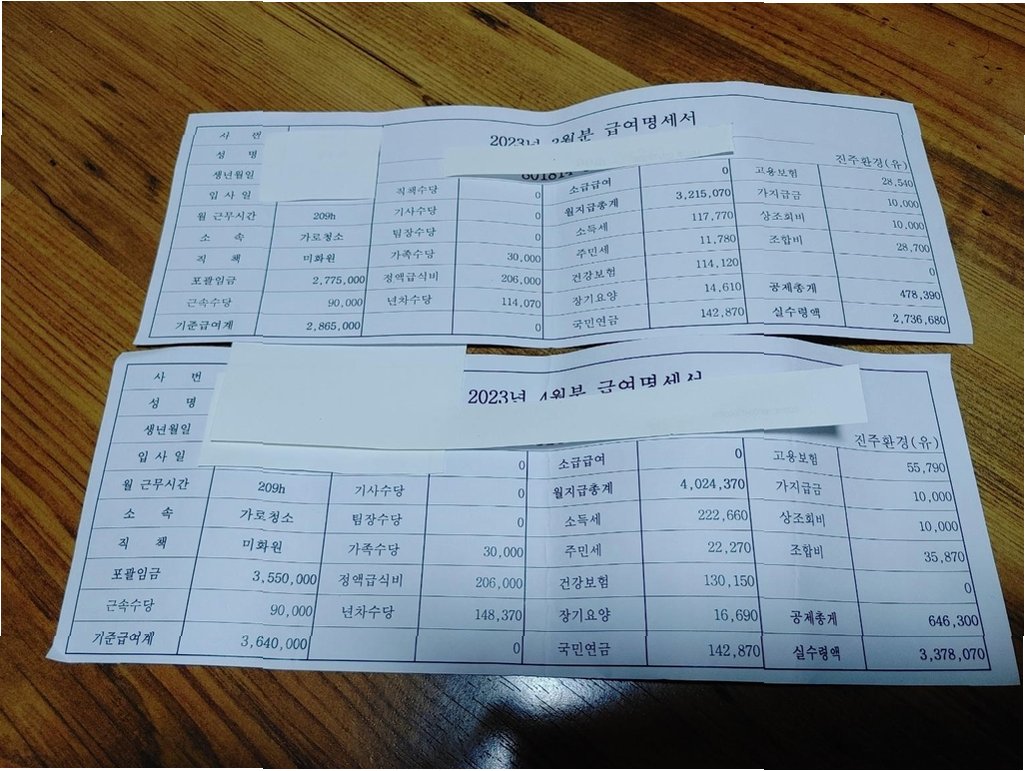 2023년 2월분 급여명세서
진주환경(유)
사 번
성 명
생년월일
입 사 일 직책수당 0 소급급여 0 고용보험 28,540
월 근무시간 209h 기사수당 0 월지급총계 3,215,070 가지급금 10,000
소 속 가로청소 팀장수당 0 소득세 117,770 상조회비 10,000
직 책 미화원 가족수당 30,000 주민세 11,780 조합비 28,700
포괄임금 2,775,000 정액급식비 206,000 건강보험 114,120 0
근속수당 90,000 년차수당 114,070 장기요양 14,610 공제총계 478,390
기준급여계 2,865,000 0 국민연금 142,870 실수령액 2,736,680
2023년 4월분 급여명세서
진주환경(유)
사 번
성 명
생년월일
입 사 일 0 소급급여 0 고용보험 55,790
월 근무시간 209h 기사수당 0 월지급총계 4,024,370 가지급금 10,000
소 속 가로청소 팀장수당 0 소득세 222,660 상조회비 10,000
직 책 미화원 가족수당 30,000 주민세 22,270 조합비 35,870
포괄임금 3,550,000 정액급식비 206,000 건강보험 130,150 0
근속수당 90,000 년차수당 148,370 장기요양 16,690 공제총계 646,300
기준급여계 3,640,000 0 국민연금 142,870 실수령액 3,378,070